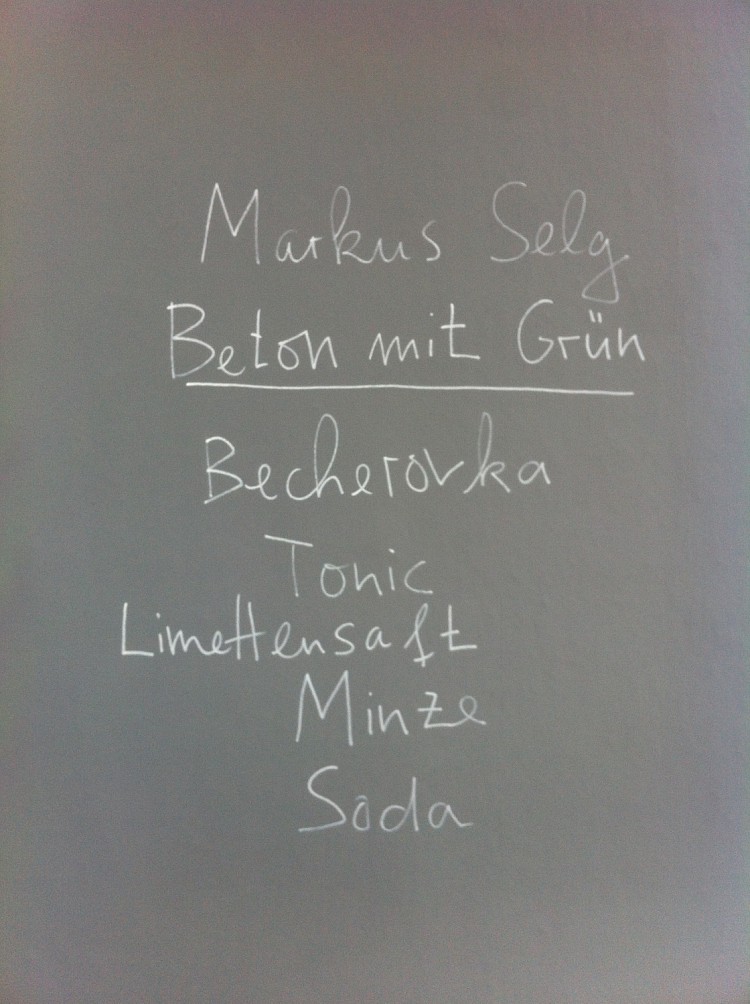 Markus Selg
Beton mit Grün
Becherovka
Tonic
Limettensaft
Minze
Soda